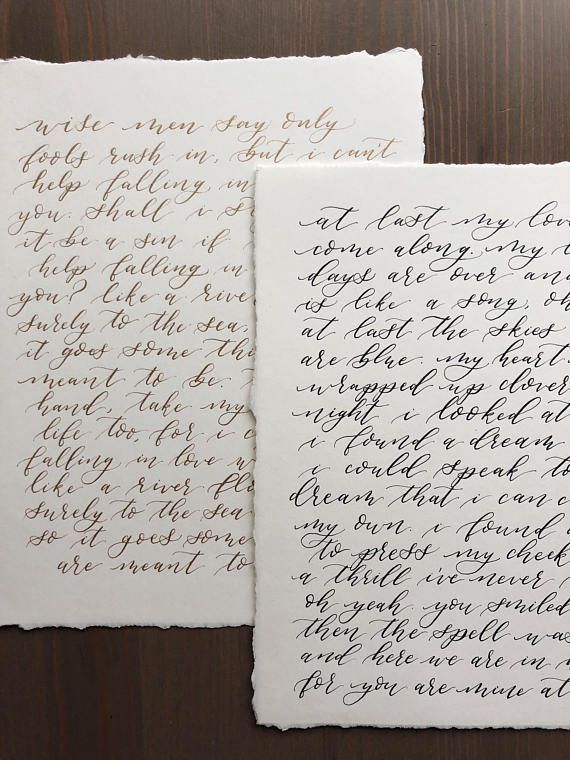 wise men say only
fools rush in, but i can't
help falling in
you. shall i
it be a sin if
help falling in
you? like a
surely to the sea.
it goes some
meant to be.
hand, take my
life too, for i
falling in love
like a river
surely to the sea
so it goes some
are meant to
at last my
come along. my
days are over
is like a song,
at last the skies
are blue. my heart
wrapped up
night i looked at
i found a dream
i could speak to
dream that i can
my own. i found
to press my cheek
a thrill i've never
oh yeah. you smiled
then the spell
and here we are in
for you are mine at